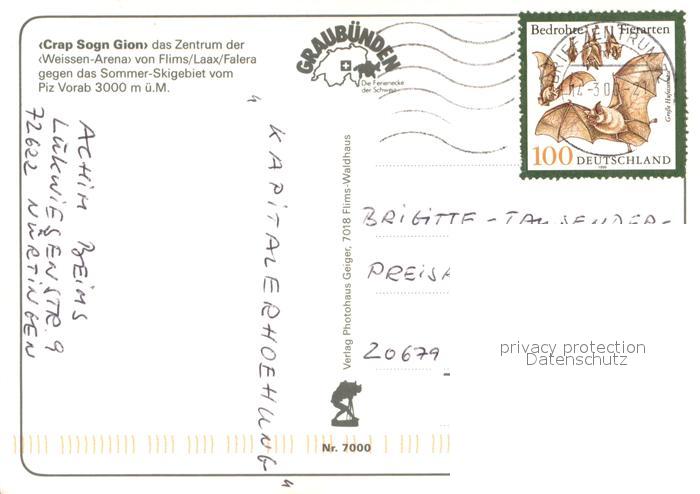 ‹Crap Sogn Gion› das Zentrum der
‹Weissen-Arena› von Flims/Laax/Falera
gegen das Sommer-Skigebiet vom
Piz Vorab 3000 m ü.M.
GRAUBÜNDEN
Die Ferienecke
der Schweiz
Bedrohte Tierarten
100 DEUTSCHLAND
ACHIM BEIMS
LUKWIESENSTR. 9
72622 NÜRTINGEN
"KAPITALERHOEHUNG"
Verlag Photohaus Geiger, 7018 Flims-Waldhaus
BRIGITTE-TAUSENDER-
20679
privacy protection
Datenschutz
Nr. 7000